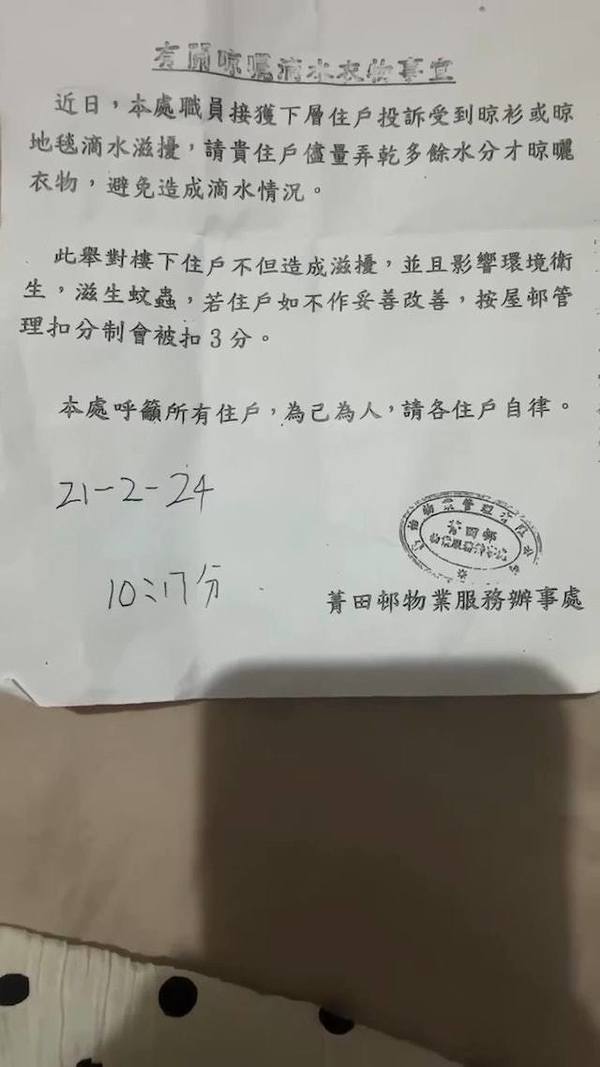 有關晾曬滴水衣物事宜
近日，本處職員接獲下層住戶投訴受到晾衫或晾
地毯滴水滋擾，請貴住戶儘量弄乾多餘水分才晾曬
衣物，避免造成滴水情況。
此舉對樓下住戶不但造成滋擾，並且影響環境衛
生，滋生蚊蟲，若住戶如不作妥善改善，按屋邨管
理扣分制會被扣3分。
本處呼籲所有住戶，為己為人，請各住戶自律。
21-2-24
10:17分
物業管理有限公
菁田邨
菁田邨物業服務辦事處